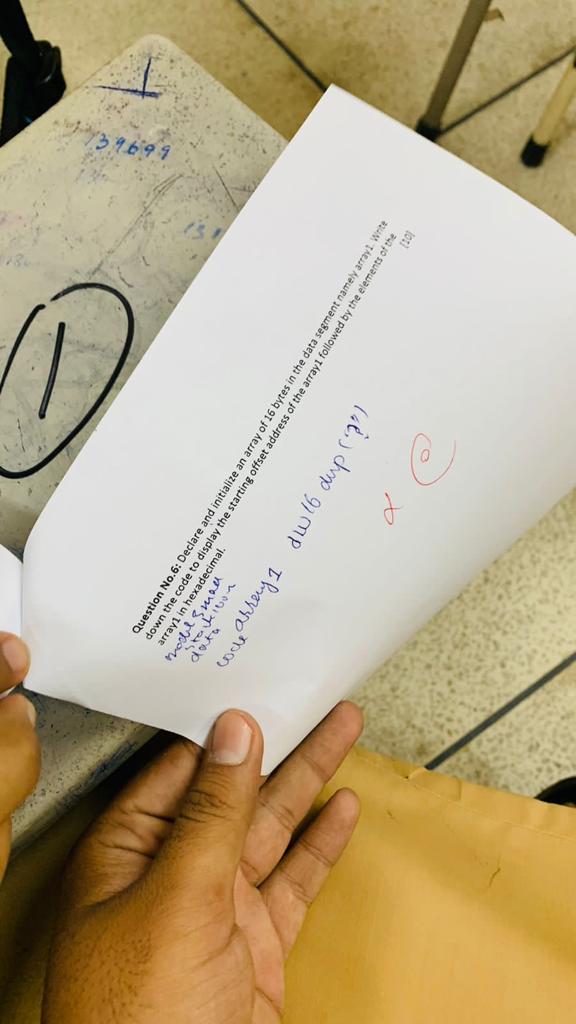 139699
1
Question No.6: Declare and initialize an array of 16 bytes in the data segment namely array1. Write
down the code to display the starting offset address of the array1 followed by the elements of the
array1 in hexadecimal. [10]
model small
stack 100h
data
code array1 dw 16 dup (?)